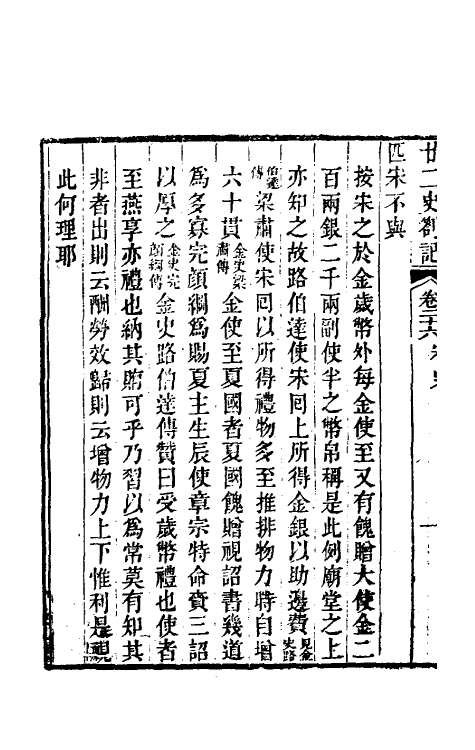 廿二史劄記 卷二十六 宋史
匹宋不與
按宋之於金歲幣外每金使至又有餽贈大使金二
百兩銀二千兩副使半之幣帛稱是此例廟堂之上
亦知之故路伯達使宋囘上所得金銀以助邊費見金史路
伯達傳梁肅使宋囘以所得禮物多至推排物力時自增
六十貫金史梁肅傳金使至夏國者夏國餽贈視詔書幾道
爲多寡完顏綱爲賜夏主生辰使章宗特命齎三詔
以厚之金史完顏綱傳金史路伯達傳贊曰受歲幣禮也使者
至燕享亦禮也納其賄可乎乃習以爲常莫有知其
非者出則云酬勞效歸則云增物力上下惟利是視
此何理耶